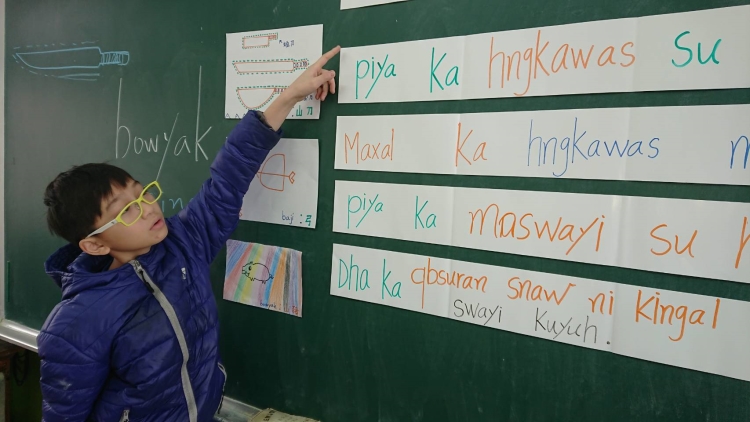 bowyak
piya ka hngkawas su
Maxal ka hngkawas m
piya ka maswayi su
Dha ka qbsuran snaw ni kingal
swayi kuyuh.
山刀
baji : 弓